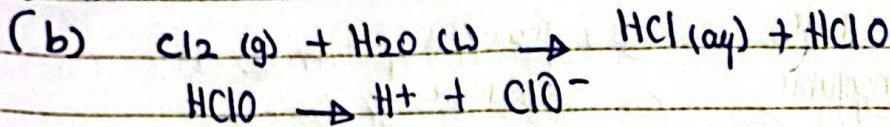 (b) Cl2 (g) + H2O (l) → HCl (aq) + HClO
HClO → H+ + ClO-